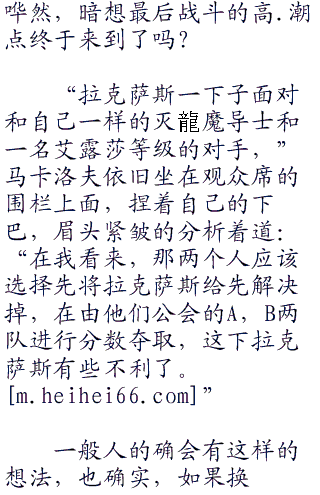 哗然，暗想最后战斗的高.潮
点终于来到了吗？
“拉克萨斯一下子面对
和自己一样的灭龍魔导士和
一名艾露莎等级的对手，”
马卡洛夫依旧坐在观众席的
围栏上面，捏着自己的下
巴，眉头紧皱的分析着道：
“在我看来，那两个人应该
选择先将拉克萨斯给先解决
掉，在由他们公会的A，B两
队进行分数夺取，这下拉克
萨斯有些不利了。
[m.heihei66.com]”
一般人的确会有这样的
想法，也确实，如果换